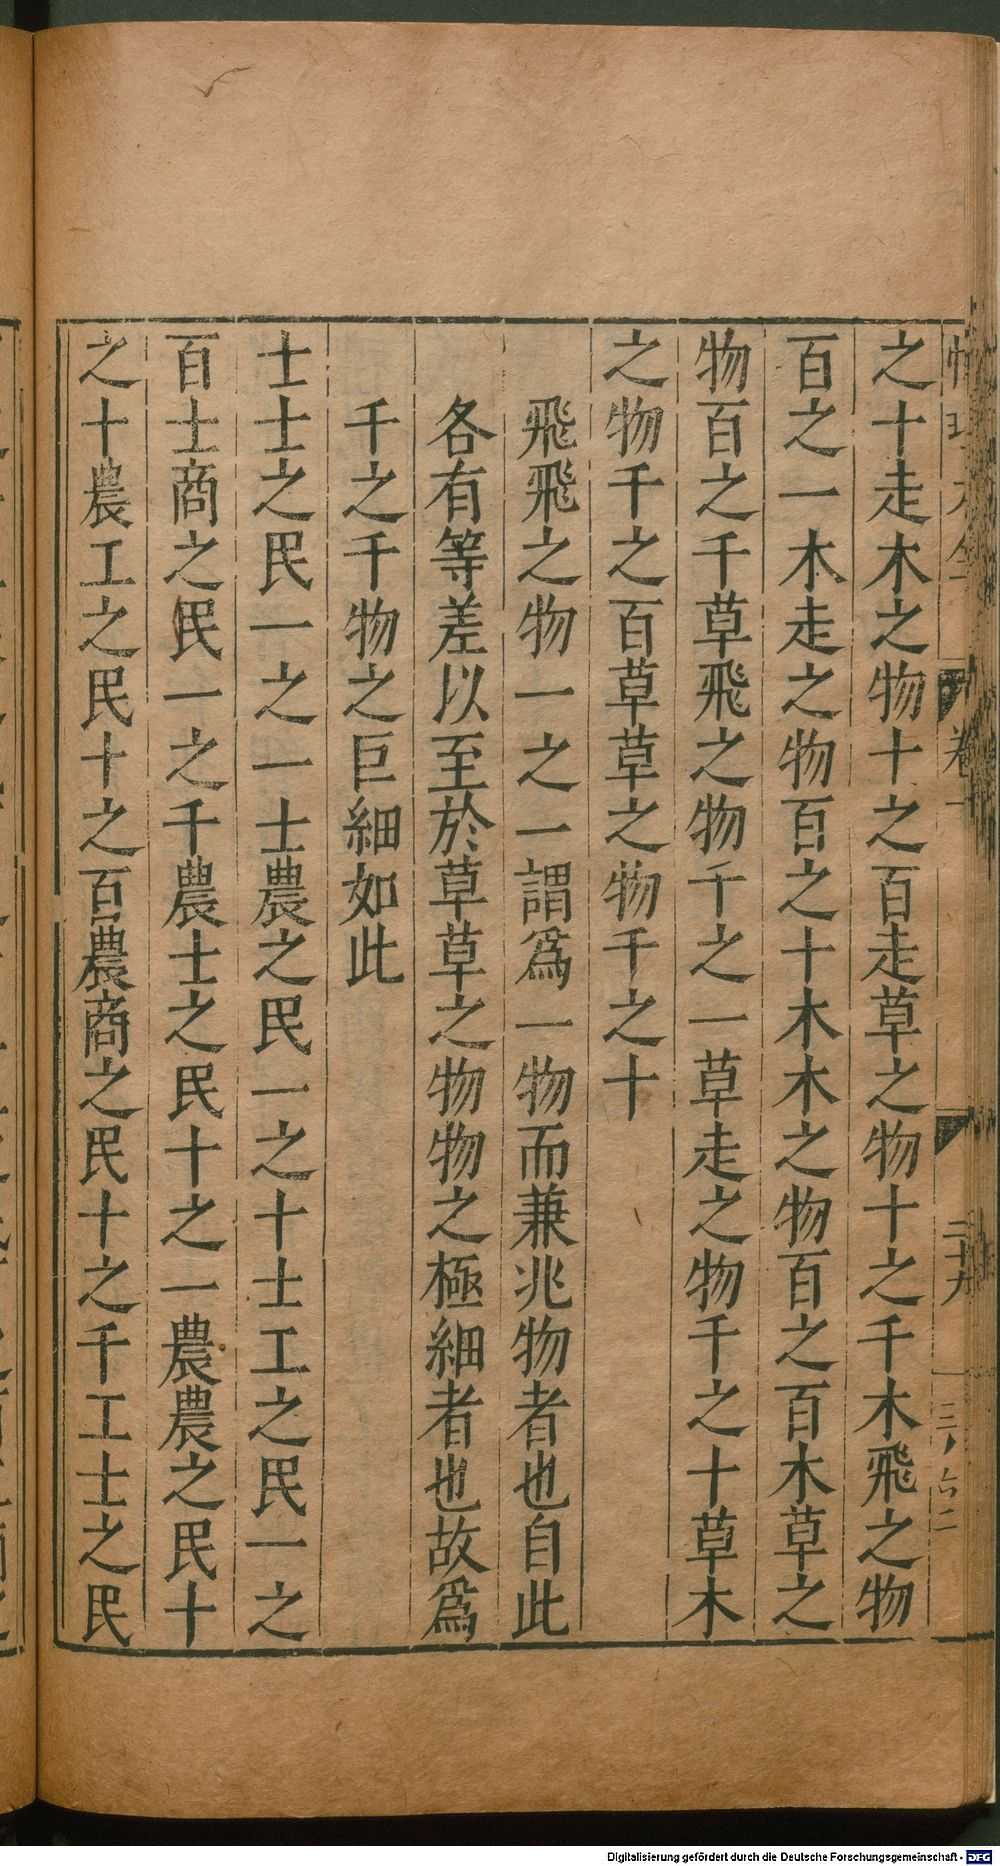 卷一
之十走木之物十之百走草之物十之千木飛之物
百之一木走之物百之十木木之物百之百木草之
物百之千草飛之物千之一草走之物千之十草木
之物千之百草草之物千之十
飛飛之物一之一謂爲一物而兼兆物者也自此
各有等差以至於草草之物物之極細者也故爲
千之千物之巨細如此
士士之民一之一士農之民一之十士工之民一之
百士商之民一之千農士之民十之一農農之民十
之十農工之民十之百農商之民十之千工士之民
Digitalisierung gefördert durch die Deutsche Forschungsgemeinschaft - DFG